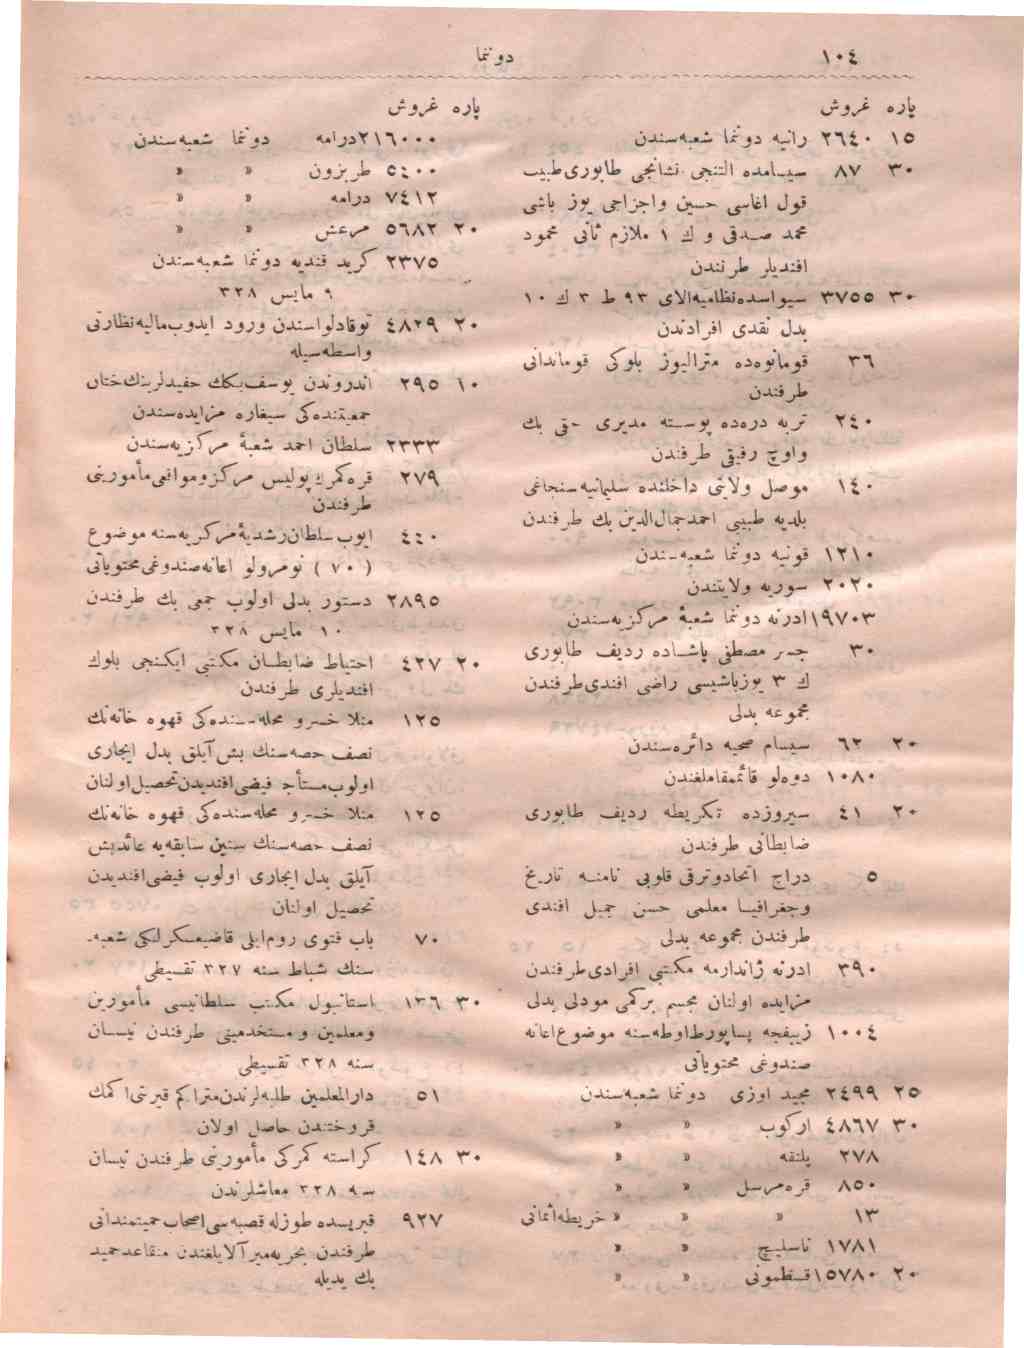 ١٠٤
دوننما
پاره غروش
١٥ ٢٦٤٠ رانیه دوننما شعبه‌سندن
٣٠ ٨٧ سیسامده التنجی نشانجی طابوری طبیب
قول اغاسی حسین واجزاجی یوز باشی
محمد صدقی و ك ١ ملازم ثانی محمود
افندیلر طرفندن
٣٠ ٣٧٥٥ سیواسده نظامیه الای ٩٣ ط ٣ ك ١٠
بدل نقدی افرادندن
٣٦ قومانوه‌ده مترالیوز بلوکی قوماندانی
طرفندن
٢٤٠ تربه دره‌ده پوسته مدیری حقی بك
واوچ رفیقی طرفندن
١٤٠ موصل ولایتی داخلنده سلیمانیه سنجاغی
بلدیه طبیبی احمد جمال‌الدین بك طرفندن
١٢١٠ قونیه دوننما شعبه‌سندن
٢٠٢٠ سوریه ولایتندن
١٩٧٠٣ ادرنه دوننما شعبهٔ مرکزیه‌سندن
٣٠ جسر مصطفی پاشاده ردیف طابوری
ك ٣ یوزباشیسی راضی افندی طرفندن
مجموعه بدلی
٢٠ ٦٢ سیسام صحیه دائره‌سندن
١٠٨٠ دوه‌لو قائممقاملغندن
٢٠ ٤١ سیروزده تکریطه ردیف طابوری
ضابطانی طرفندن
٥ دراج اتحاد وترقی قلوبی نامنه تاریخ
وجغرافیا معلمی حسن جمیل افندی
طرفندن مجموعه بدلی
٣٩٠ ادرنه ژاندارمه مکتبی افرادی طرفندن
مزایده اولنان مجسم برکمی مودلی بدلی
١٠٠٤ زیبفچه پساپورط اوطه‌سنه موضوع اعانه
صندوغی محتویاتی
٢٥ ٢٤٩٩ مجید اوزی دوننما شعبه‌سندن
٣٠ ٤٨٦٧ ارکوب » »
٢٧٨ پلنقه » »
٨٥٠ قره‌مرسل » »
١٣ » » » خریطه اثمانی
١٧٨١ ناسلیچ » »
٢٠ ١٥٧٨٠ قسطمونی » »
پاره غروش
٢١٦٠٠٠ درامه دوننما شعبه‌سندن
٥٤٠٠ طربزون » »
٧٤١٢ درامه » »
٢٠ ٥٦٨٢ مرعش » »
٢٣٧٥ کرید قندیه دوننما شعبه‌سندن
٩ مایس ٣٢٨
٢٠ ٤٨٢٩ توقاد لواسندن ورود ایدوب مالیه نظارتی
واسطه‌سیله
١٠ ٢٩٥ اندروندن یوسف بکك حفیدلرینك ختان
جمعیتنده‌کی سیغاره مزایده‌سندن
٢٣٣٣ سلطان احمد شعبهٔ مرکزیه‌سندن
٢٧٩ قره‌کمرك پولیس مرکز ومواقعی مأمورینی
طرفندن
٤٤٠ ایوب سلطان رشدیهٔ مرکزیه‌سنه موضوع
( ٧٠ ) نومرولو اعانه صندوغی محتویاتی
٢٨٩٥ دستور بدلی اولوب جمعی بك طرفندن
١٠ مایس ٣٢٨
٢٠ ٤٢٧ احتیاط ضابطان مکتبی ایکنجی بلوك
افندیلری طرفندن
١٢٥ منلا خسرو محله‌سنده‌کی قهوه خانه‌نك
نصف حصه‌سنك بش آیلق بدل ایجاری
اولوب مستأجر فیضی افندیدن تحصیل اولنان
١٢٥ منلا خسرو محله‌سنده‌کی قهوه خانه‌نك
نصف حصه‌سنك سنین سابقه‌یه عائد بش
آیلق بدل ایجاری اولوب فیضی افندیدن
تحصیل اولنان
٧٠ باب فتوی روم‌ایلی قاضیعسکرلکی شعبه‌
سنك شباط سنه ٣٢٧ تقسیطی
٣٠ ١٣٦ استانبول مکتب سلطانیسی مأمورین
ومعلمین ومستخدمینی طرفندن نیسان
سنه ٣٢٨ تقسیطی
٥١ دارالمعلمین طلبه‌لرندن متراکم قیرنتی اکمك
فروختندن حاصل اولان
٣٠ ١٤٨ کراسته کمرکی مأمورینی طرفندن نیسان
سنه ٣٢٨ معاشلرندن
٩٢٧ قبریسده طوزله قصبه‌سی اصحاب حمیتمندانی
طرفندن بحریه میرآلایلغندن متقاعد حمید
بك یدیله